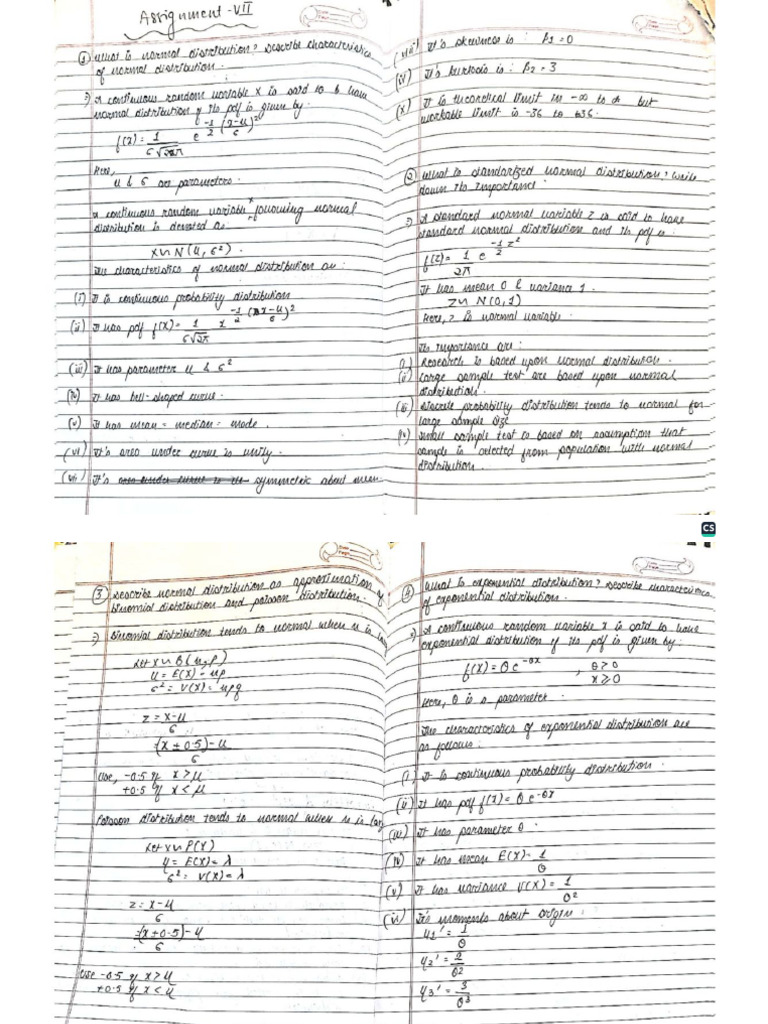 Assignment-VII
① What is normal distribution? Describe characteristics
of normal distribution.
⇒ A continuous random variable X is said to b have
normal distribution if its pdf is given by.
f(x) = 1/(6√2π) e^(-1/2 (x-u/6)^2)
Here,
u & 6 are parameters.
A continuous random variable x following normal
distribution is denoted as:
X ∽ N(u, 6²).
The characteristics of normal distribution are:
(i) It is continuous probability distribution
(ii) It has pdf f(x) = 1/(6√2π) x^(-1/2 (x-u/6)^2)
(iii) It has parameter u & 6²
(iv) It has bell-shaped curve.
(v) It has mean = median = mode.
(vi) It's area under curve is unity.
(vii) It's area under curve is its symmetric about mean.
(viii) It's skewness is : β1 = 0
(ix) It's kurtosis is : β2 = 3
(x) It is theoretical limit is -∞ to ∞ but
workable limit is -36 to +36.
② What is standarized normal distribution? Write
down its importance.
⇒ A standard normal variable z is said to have
standard normal distribution and its pdf is.
f(z) = 1/2π e^(-1/2 z²)
It has mean 0 & variance 1.
Z ∽ N(0,1)
Here, z is normal variable.
Its importance are:
(i) Research is based upon normal distribution.
(ii) Large sample test are based upon normal
distribution.
(iii) Discrete probability distribution tends to normal for
large sample size
(iv) Small sample test is based on assumption that
sample is selected from population with normal
distribution.
CS
③ Describe normal distribution as approximation of
binomial distribution and poisson distribution.
⇒ Binomial distribution tends to normal when n is
Let X ∽ B(n,p)
u = E(X) = np
6² = V(X) = npq
z = x-u/6
= (x ± 0.5) - u/6
Use, -0.5 if x > u
+0.5 if x < u
Poisson distribution tends to normal when n is
Let X ∽ P(λ)
u = E(X) = λ
6² = V(X) = λ
z = x-u/6
= (x ± 0.5) - u/6
Use -0.5 if x > u
+0.5 if x < u
What is exponential distribution? Describe characteristics
of exponential distribution.
⇒ A continuous random variable X is said to have
exponential distribution if its pdf is given by:
f(x) = θ e^(-θx) , θ > 0
x ≥ 0
Here, θ is a parameter.
The characteristics of exponential distribution are
as follows:
(i) It is continuous probability distribution.
(ii) It has pdf f(x) = θ e^(-θx)
(iii) It has parameter θ.
(iv) It has mean E(X) = 1/θ
(v) It has variance V(X) = 1/θ²
(vi) It's moments about origin:
u1' = 1/θ
u2' = 2/θ²
u3' = 3/θ³